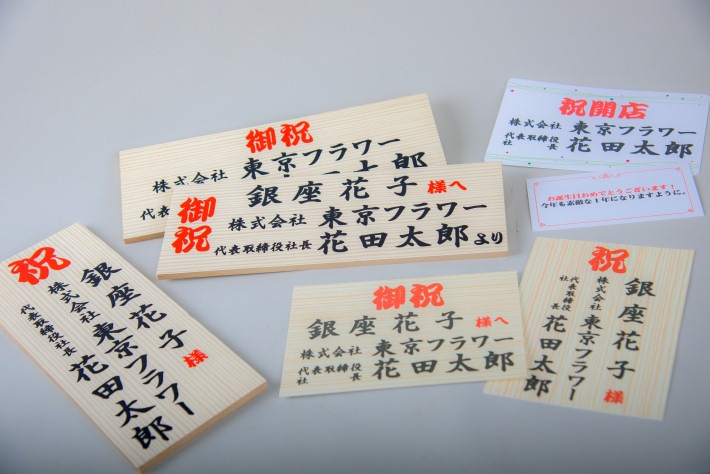 御祝
株式会社 東京フラワー
代表 花田太郎
御祝
銀座花子 様へ
株式会社 東京フラワー
代表取締役社長 花田太郎 より
祝
銀座花子 様
株式会社 東京フラワー
代表取締役社長 花田太郎
御祝
銀座花子 様へ
株式会社 東京フラワー
代表取締役社長 花田太郎
祝開店
株式会社 東京フラワー
代表取締役社長 花田太郎
お誕生日おめでとうございます！
今年も素敵な1年になりますように。
祝
銀座花子 様
株式会社 東京フラワー
代表取締役社長 花田太郎